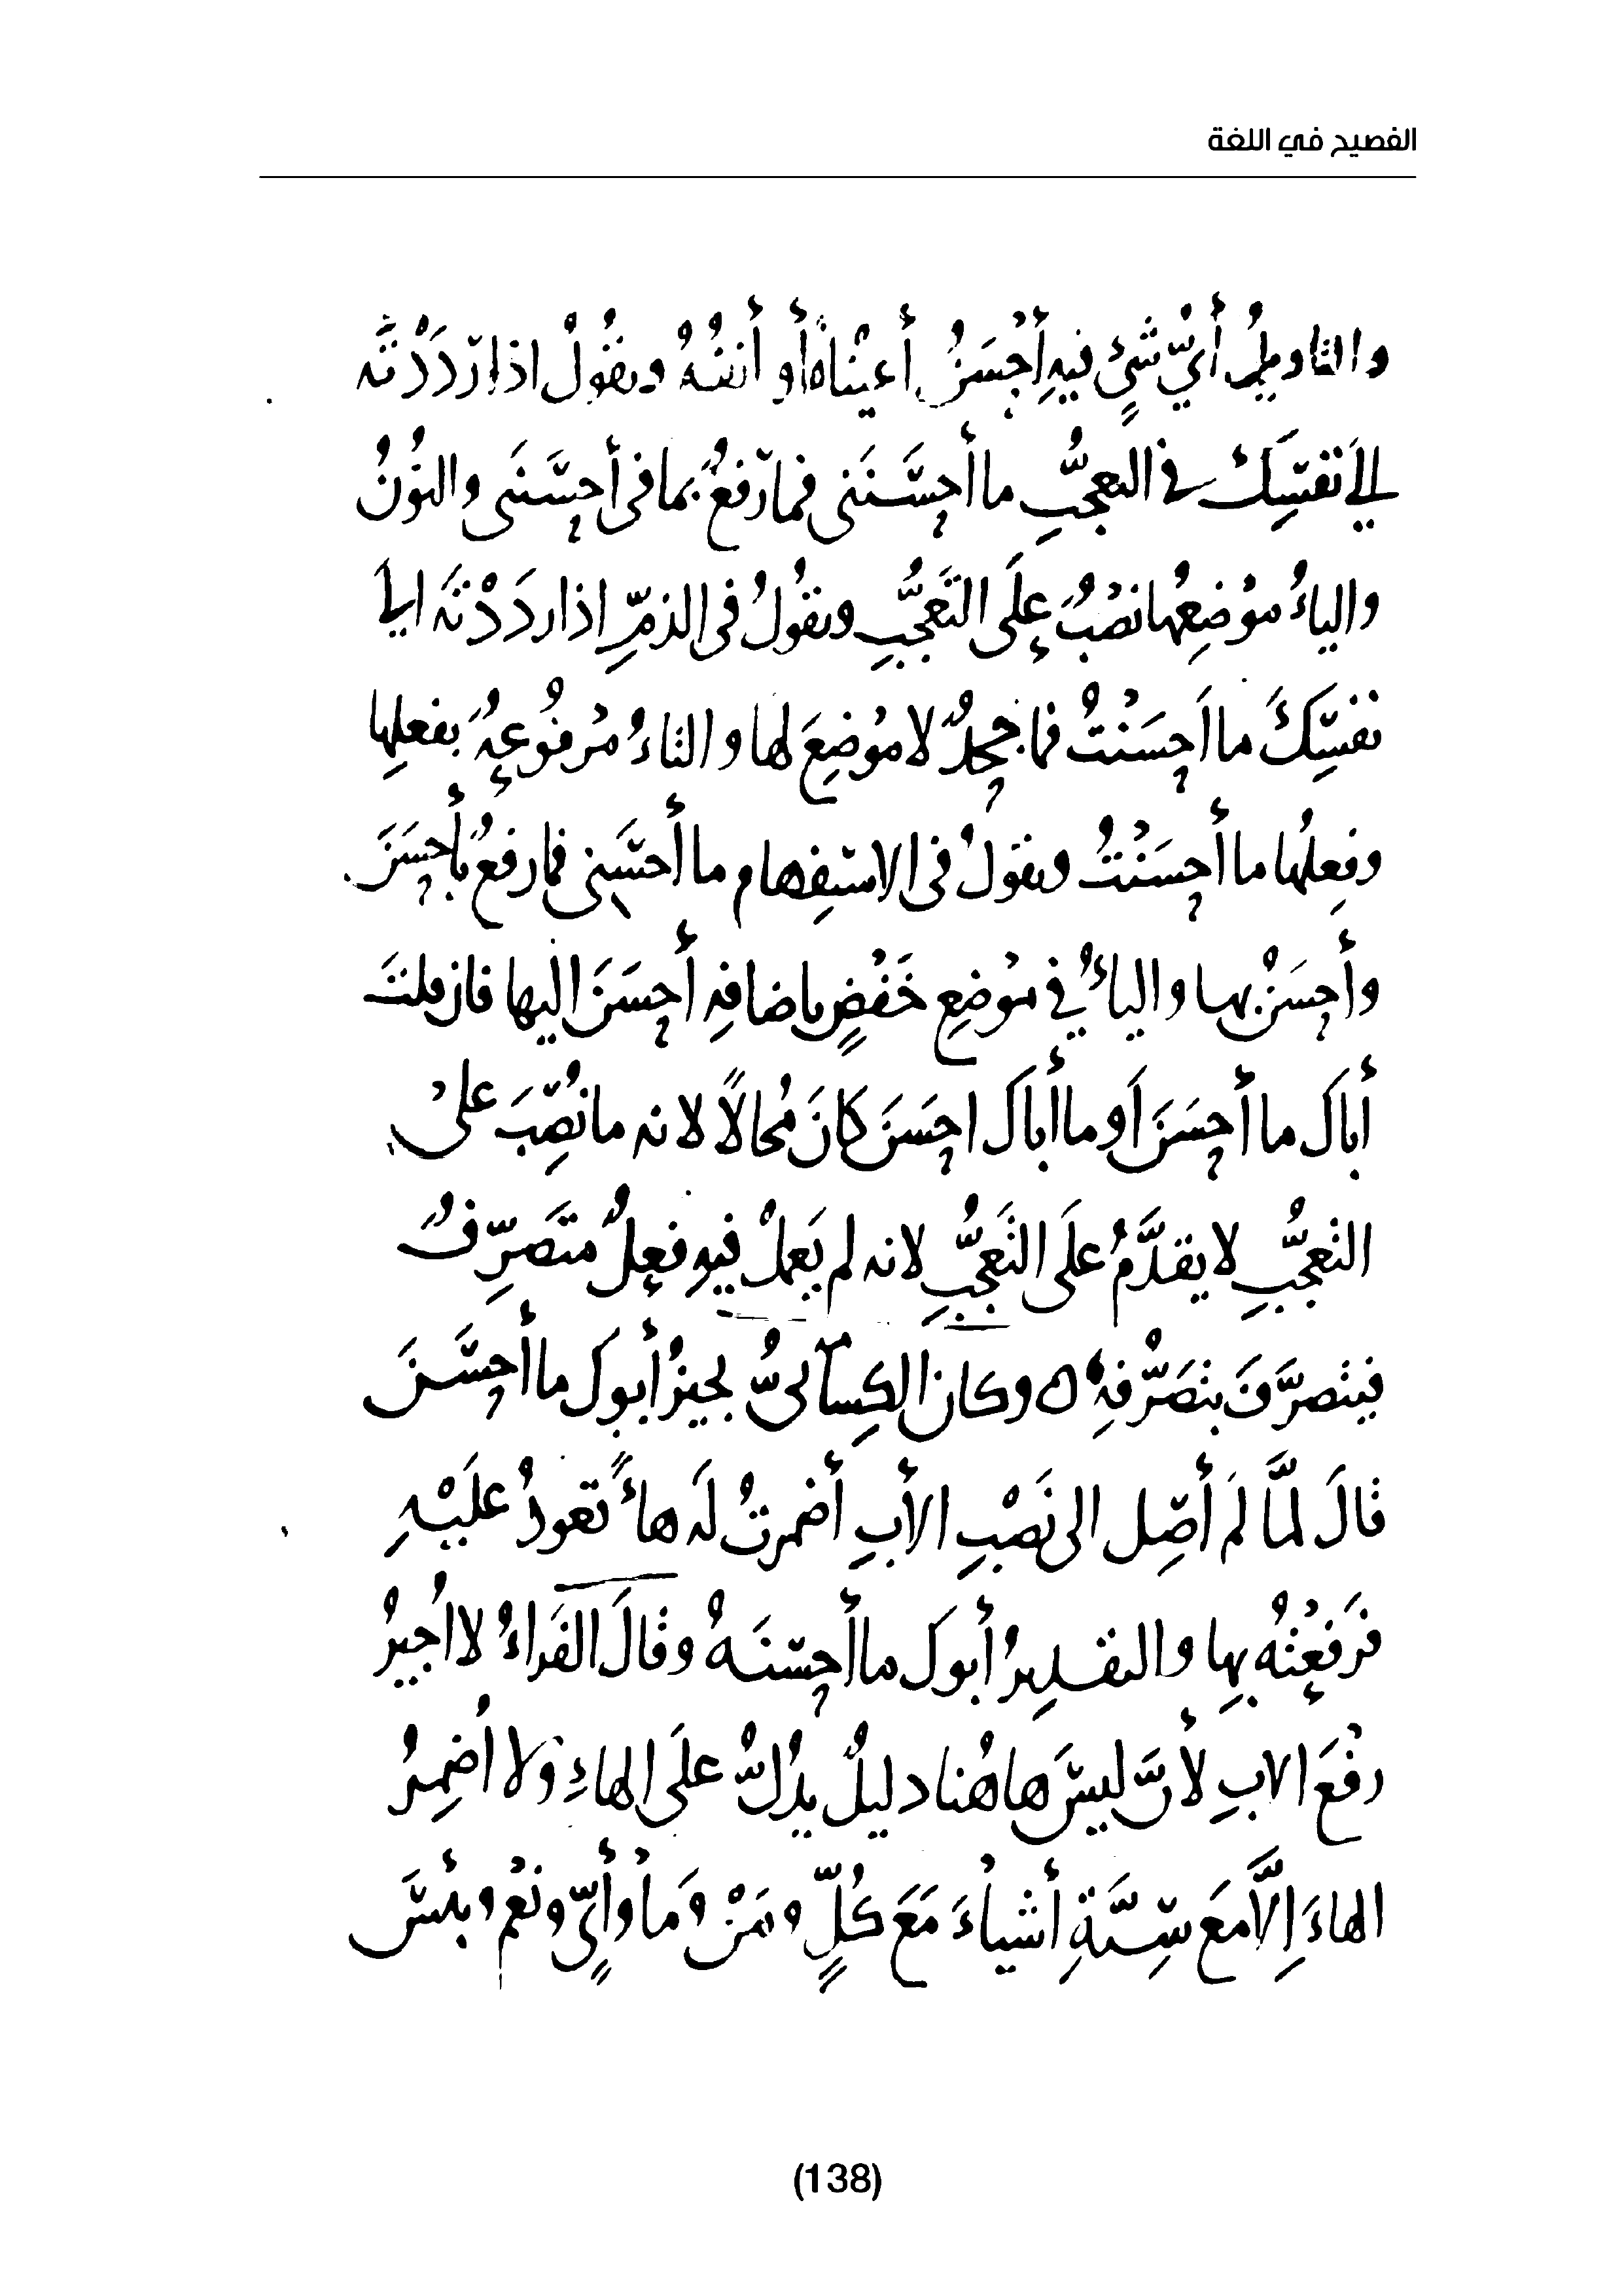 الفصيح في اللغة
والتأويلُ أيُّ شيءٍ فيهِ أحْسَنُ أعيْناهُ أو أنفُهُ وتقُولُ اذا رَدَدْتَه
إلى نفسِكَ في التعجُّبِ ما أحسَنَني فما رَفعٌ بما في أحسَنَني والنُّونُ
والياءُ موْضِعُهما نصْبٌ عَلَى التَّعَجُّبِ وتقُولُ في الذمِّ اذا رَدَدْتَه الى
نفسِكَ ما اَحسَنْتُ فما جحدٌ لا موْضِعَ لها والتاءُ مرْفُوعةٌ بفعلِها
وفِعلُها ما أحسَنْتُ وتقولُ في الاستفِهام ما أحسَنِي فما رفعٌ بأحسَنَ
وأحسَنُ بها والياءُ في موْضِعِ خَفْضٍ باضافةِ أحسَنَ اليها فان قلتَ
أباكَ ما أحسَنَ اَو ما أباكَ احسَنَ كانَ مُحالًا لانه ما نُصِبَ على
التعجُّبِ لا يقدَّمُ علَى التَّعجُّبِ لانه لم يَعملْ فيهِ فعِلٌ متَصَرِّفٌ
فيتصرَّفَ بتصَرُّفِهِ ه وكان الكِسائىُّ يجيزُ أبوكَ ما أحسَنَ
قالَ لمَّا لمَ أصِل الى نَصْبِ الأبِ أضمرتُ لَه هاءً تعودُ علَيْهِ
فرَفعْتُه بِها والتقديرُ أبوكَ ما أحسَنَهُ وقالَ الفَراءُ لا اُجيزُ
رفْعَ الابِ لأنَّ ليسَ هاهُنا دليلٌ يدُلُّ علَى الهاءِ وَلا اُضمِرُ
الهاءَ اِلّا معَ سِتَّةِ أشياءَ مَعَ كُلٍّ ومَنْ وَما وأيٍّ ونعْم وبئسَ
(138)